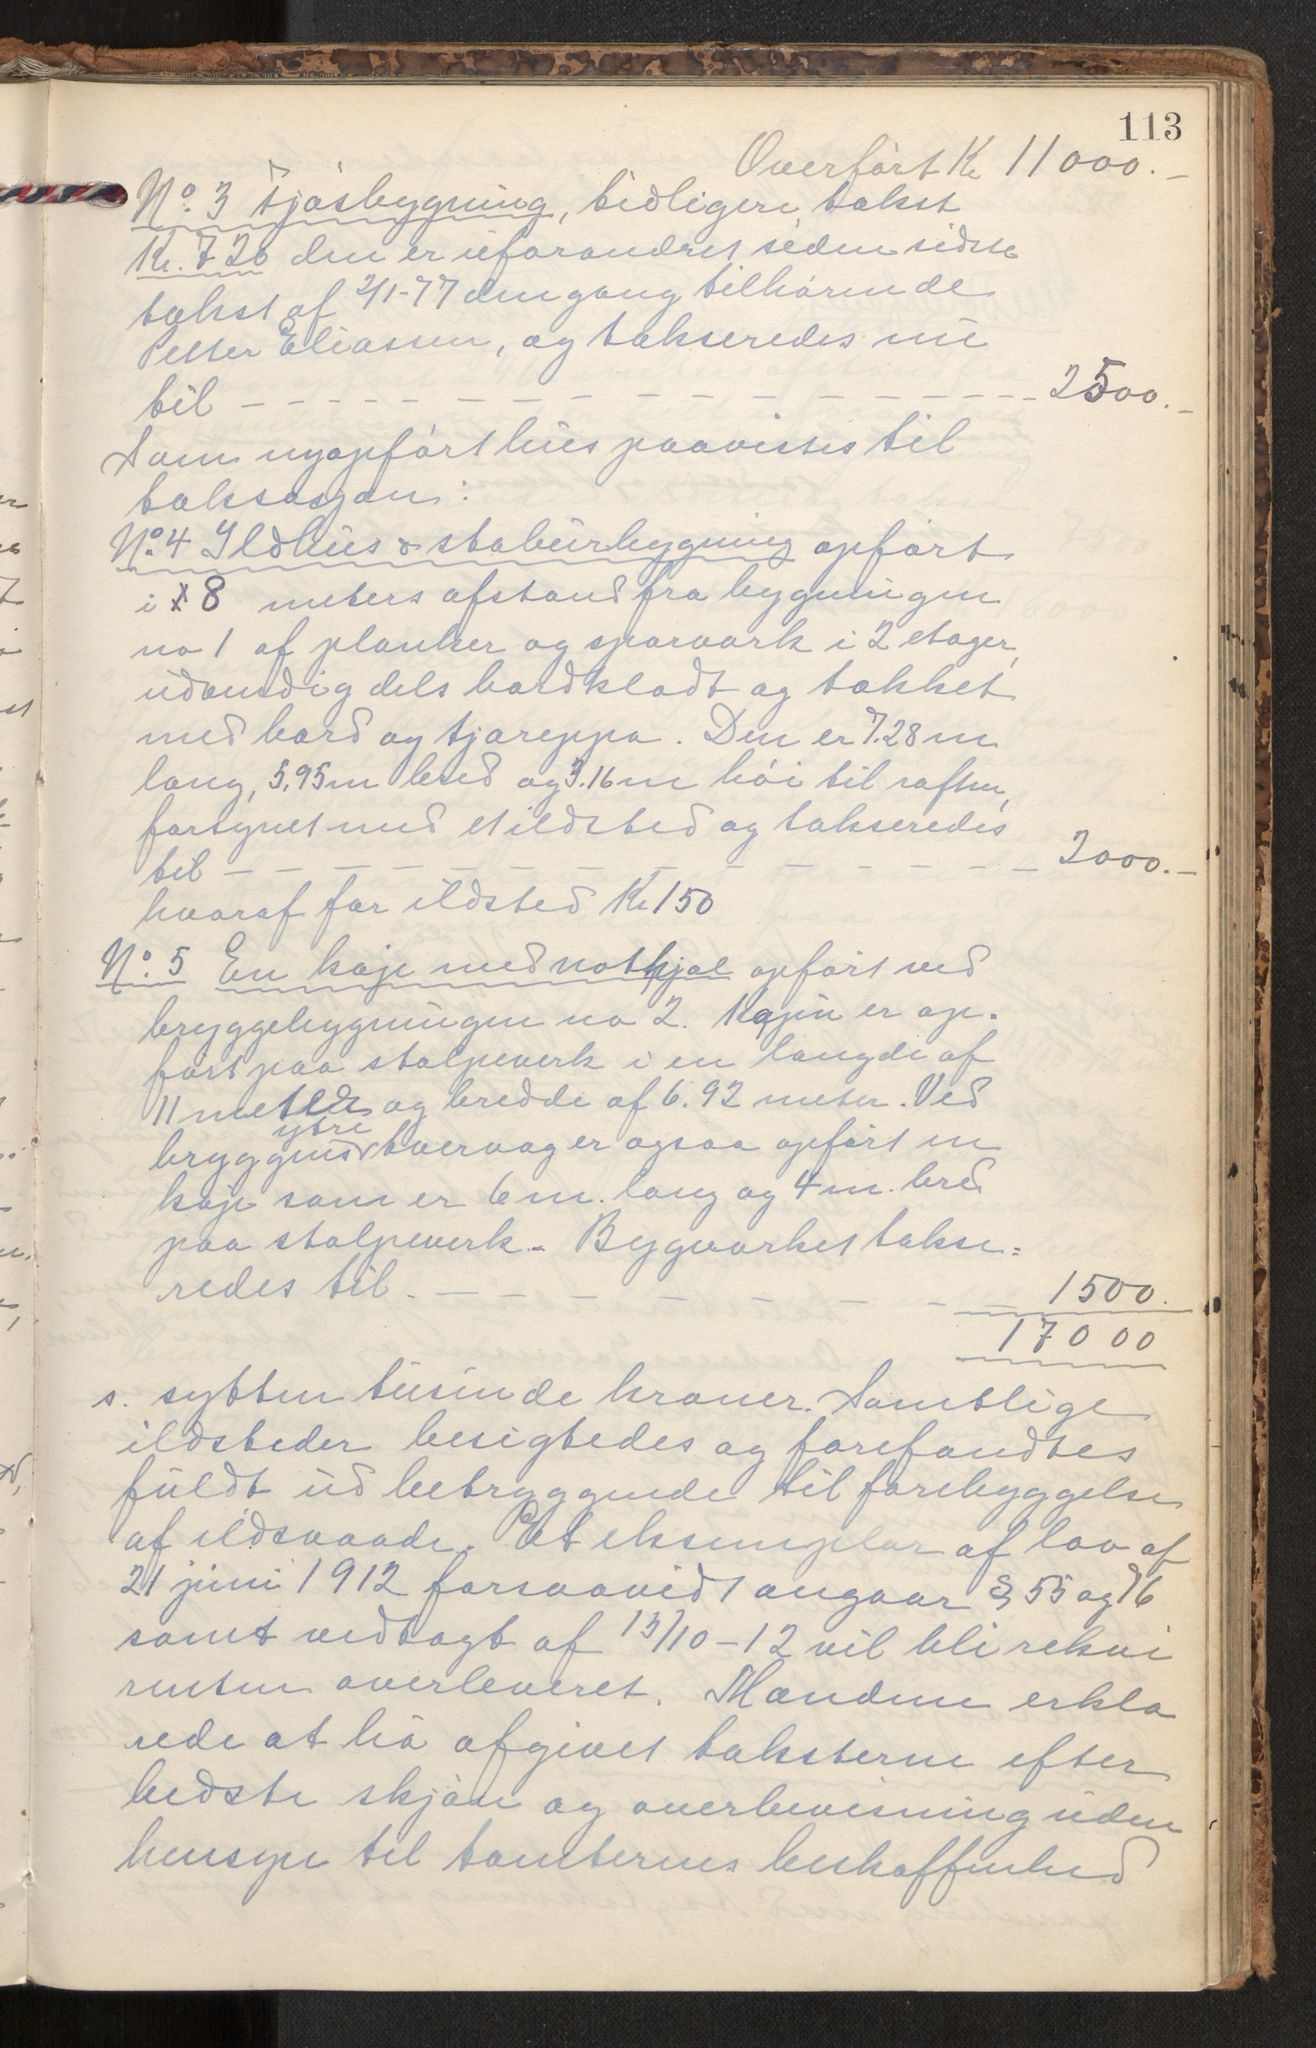 113
Overført Kr 11000.-
No. 3 Fjøsbygning, tidligere takst
Kr. 720 den er uforandret siden sidste
takst af 2/1-77 dengang tilhørende
Petter Eliassen, og takseredes nu
til - - - - - - - - - - - - - - - 2500.-
Som nyopført hus paavistes til
taksasjon:
No. 4 Ildhus & stabursbygning opført
i 8 meters afstand fra bygningen
no 1 af planker og sparværk i 2 etager,
udvendig dels bordklædt og tækket
med bord og tjærepap. Den er 7.28 m
lang, 5.95 m bred og 3.16 m høi til raften,
forsynet med et ildsted og takseredes
til - - - - - - - - - - - - - - 2000.-
hvoraf for ildsted Kr 150
No. 5 En kaje med nothjel opført ved
bryggebygningen no 2. Kajen er op-
ført paa stolpeverk i en længde af
11 meter og bredde af 6.92 meter. Ved
ytre
bryggens tvervæg er ogsaa opført en
kaje som er 6 m. lang og 4 m. bred
paa stolpeverk. Bygværket takse=
redes til. - - - - - - - - - 1500.
17000
s. sytten tusinde kroner. Samtlige
ildsteder besigtedes og forefandtes
fuldt ud betryggende til forebyggelse
af ildsvaade. Et eksemplar af lov af
21 juni 1912 forsaavidt angaar §§ 55 og 76
samt vedtagt af 13/10-12 vil bli rekvi
renten overleveret. Mændene erklæ
rede at ha afgivet taksterne efter
bedste skjøn og overbevisning uden
hensyn til tomternes beskaffenhed